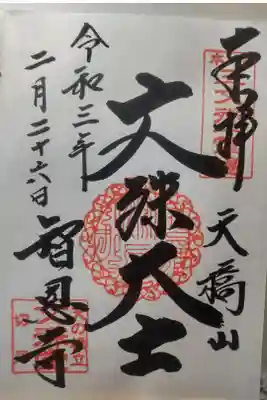 奉拝
天橋山
文殊大士
令和三年
二月二十六日
智恩寺